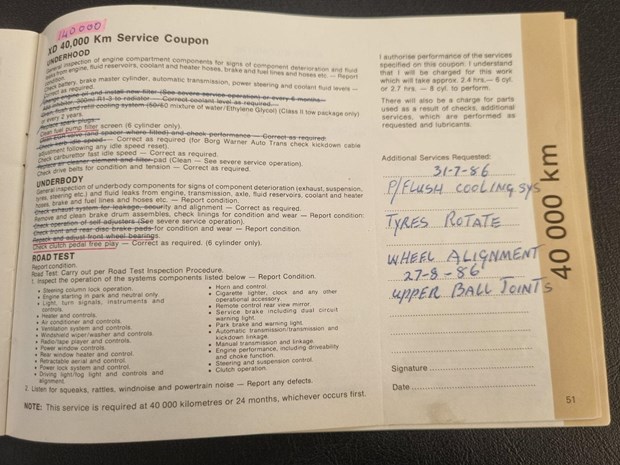 140000
XD 40,000 Km Service Coupon
UNDERHOOD
General inspection of engine compartment components for signs of component deterioration and fluid
leaks from engine, fluid reservoirs, coolant and heater hoses, brake and fuel lines and hoses etc. — Report
condition.
Check battery, brake master cylinder, automatic transmission, power steering and coolant fluid levels —
Correct as required.
Change engine oil and install new filter (See severe service operation) or every 6 months.
Add inhibitor, 300ml R1-3 to radiator — Correct coolant level as required.
Drain, flush and refill cooling system (50/50 mixture of water/Ethylene Glycol) (Class II tow package only)
every 2 years.
spark plugs
Clean fuel pump filter screen (6 cylinder only).
Clean EGR valve (and spacer where fitted) and check performance — Correct as required.
Check curb idle speed — Correct as required (for Borg Warner Auto Trans check kickdown cable
adjustment following any idle speed reset).
Check carburettor fast idle speed — Correct as required.
Replace air cleaner element and filter pad (Clean — See severe service operation).
Check drive belts for condition and tension — Correct as required.
UNDERBODY
General inspection of underbody components for signs of component deterioration (exhaust, suspension,
tyres, steering etc.) and fluid leaks from engine, transmission, axle, fluid reservoirs, coolant and heater
hoses, brake and fuel lines and hoses etc. — Report condition.
Check exhaust system for leakage, security and alignment — Correct as required.
Remove and clean brake drum assemblies, check linings for condition and wear — Report condition.
Check operation of self adjusters (See severe service operation).
Check front and rear disc brake pads for condition and wear — Correct as required.
Repack and adjust front wheel bearings.
Check clutch pedal free play — Correct as required. (6 cylinder only).
ROAD TEST
Report condition.
Road Test: Carry out per Road Test Inspection Procedure.
1. Inspect the operation of the systems components listed below — Report Condition.
• Steering column lock operation.
• Engine starting in park and neutral only
• Light, turn signals, instruments and
controls.
• Heater and controls.
• Air conditioner and controls.
• Ventilation system and controls.
• Windshield wiper/washer and controls.
• Radio/tape player and controls.
• Power window controls.
• Rear window heater and control.
• Retractable aerial and control.
• Power lock system and control.
• Driving light/fog light and controls and
alignment.
• Horn and control.
• Cigarette lighter, clock and any other
operational accessory.
• Remote control rear view mirror
• Service brake including dual circuit
warning light.
• Park brake and warning light.
• Automatic transmission/transmission and
kickdown linkage.
• Manual transmission and linkage.
• Engine performance, including driveability
and choke function.
• Steering and suspension control.
• Clutch operation.
2. Listen for squeaks, rattles, windnoise and powertrain noise — Report any defects.
NOTE: This service is required at 40 000 kilometres or 24 months, whichever occurs first.
I authorise performance of the services
specified on this coupon: I understand
that I will be charged for this work
which will take approx. 2.4 hrs.— 6 cyl.
or 2.7 hrs. — 8 cyl. to perform.
There will also be a charge for parts
used as a result of checks, additional
services, which are performed as
requested and lubricants.
Additional Services Requested:
31-7-86
P/FLUSH COOLING SYS
TYRES ROTATE
WHEEL ALIGNMENT
27-8-86
UPPER BALL JOINTS
Signature
Date
40 000 km
51